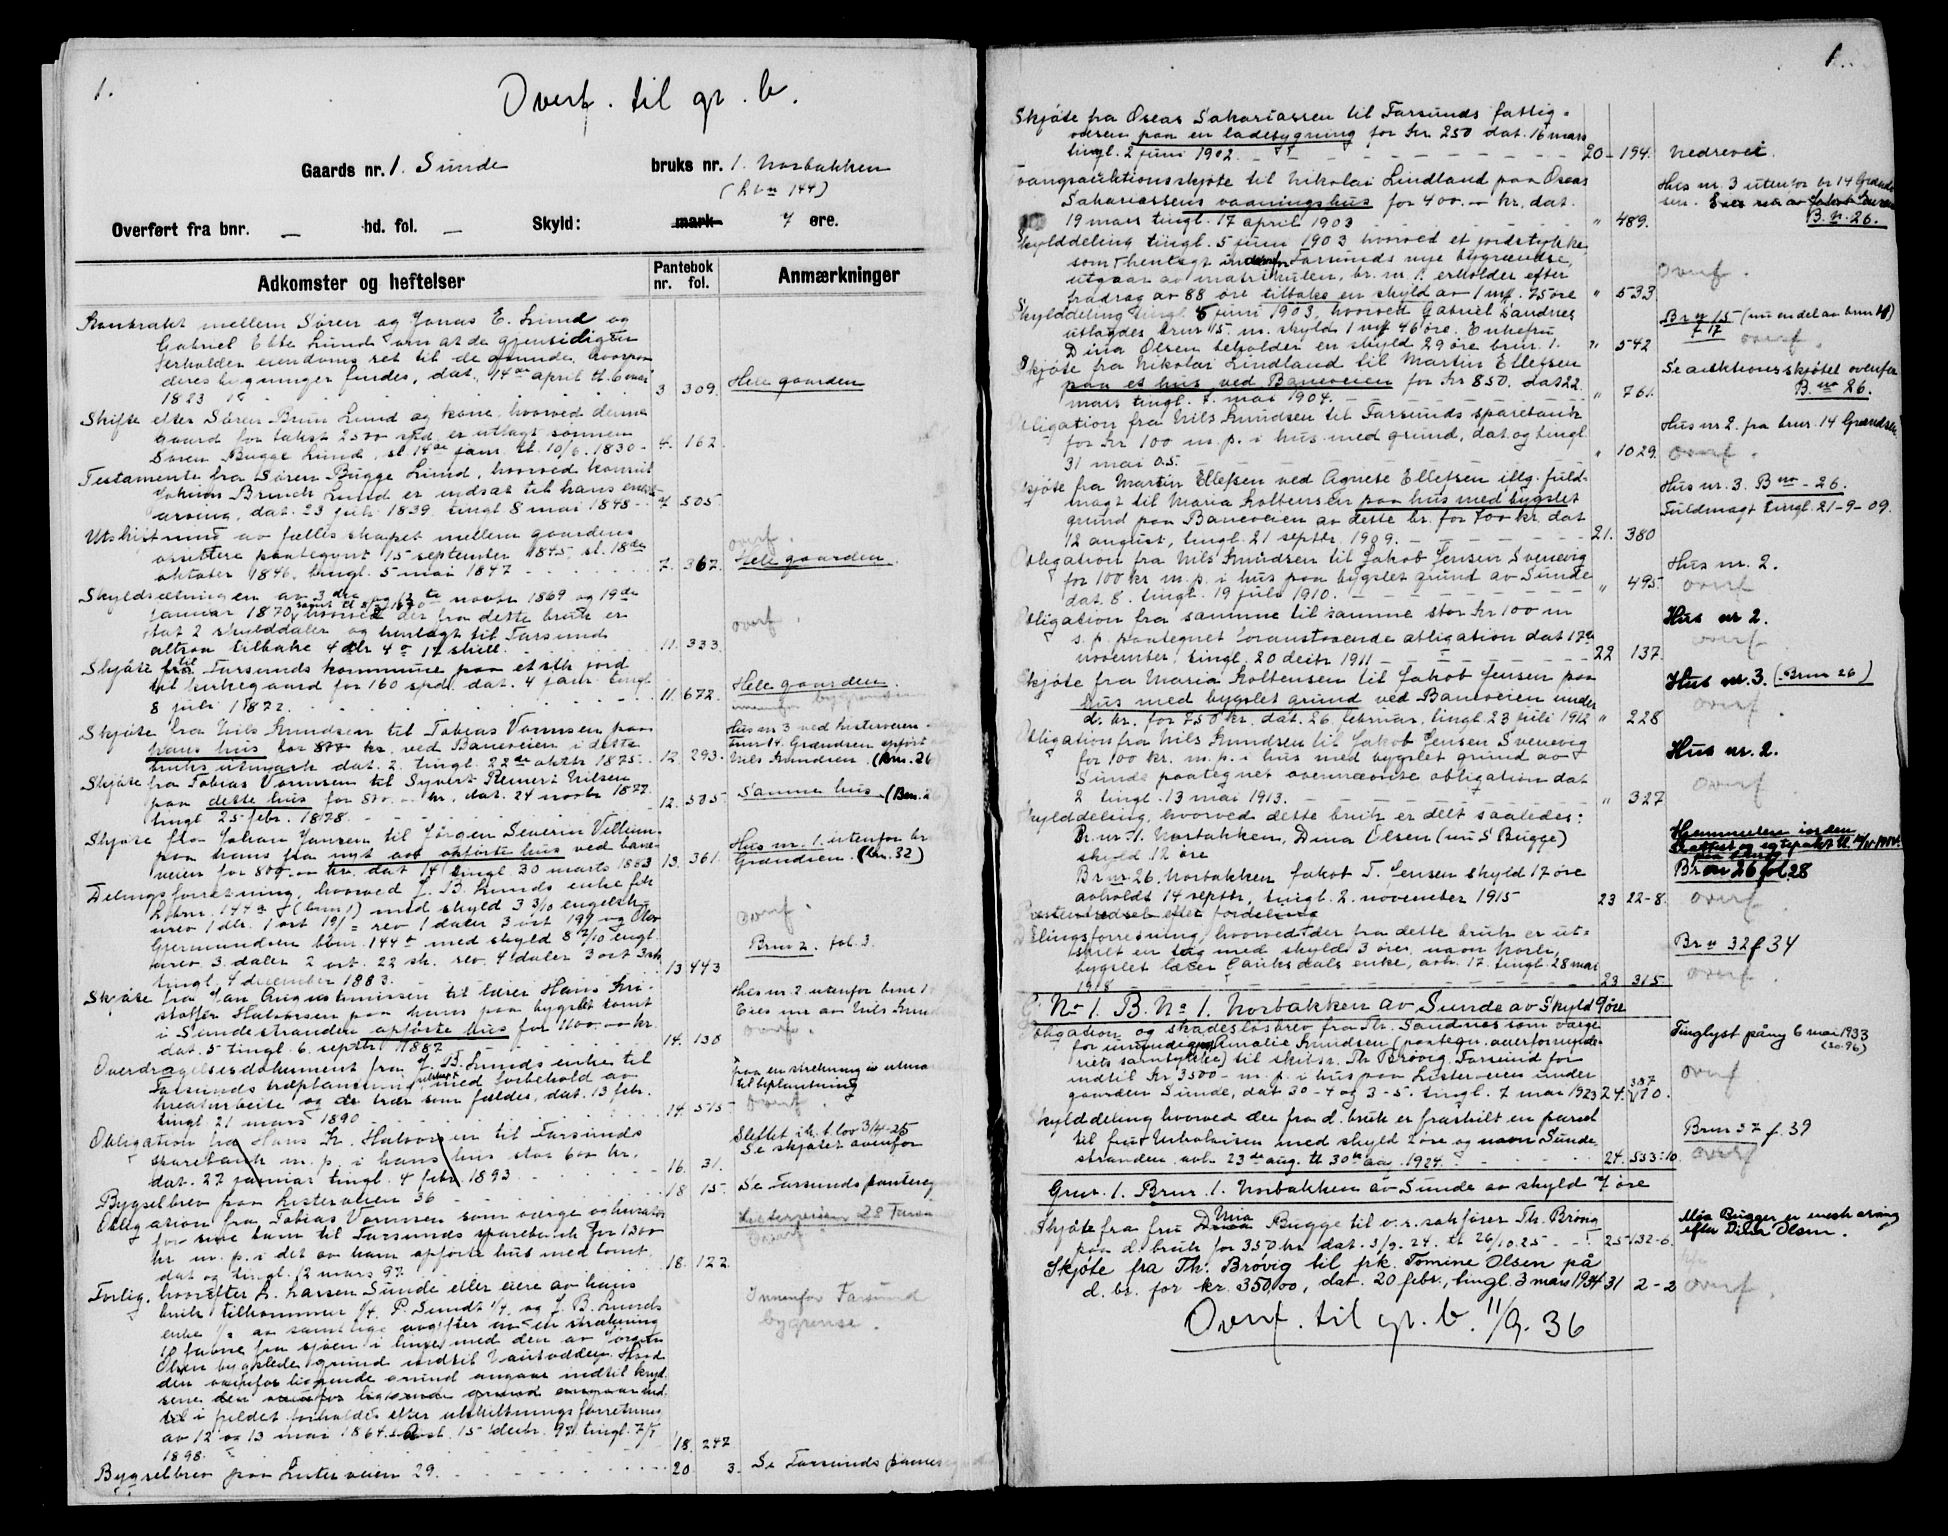 1.
Overf. til gr. b.
Gaards nr. 1. Sunde bruks nr. 1. Norbakken
(Lbn 144)
Overført fra bnr. — bd. fol. — Skyld: mark 7 øre.
Adkomster og heftelser Pantebok nr. fol. Anmærkninger
Kontrakt mellem Søren og Jonas E. Lund og
Gabriel Ebbe Lund om at de gjensidigen
forbeholder eiendoms ret til de grunde, hvorpaa
deres bygninger findes, dat. 14de april tl. 6 mai
1823 3 309. Hele gaarden
Skifte efter Søren Brun Lund og kone, hvorved denne
gaard for takst 2500 spd. er utlagt sønnen
Søren Bugge Lund, sl. 14de janr. tl. 10/6. 1830 - 4. 162.
Testamente fra Søren Bugge Lund, hvorved
Brinch Lund er indsat til hans
arving, dat. 23 juli 1839. tingl 8 mai 1848 - 7 505
Utskiftning av fællesskapet mellem gaardens
opsittere paategynt 15 september 1845, sl. 18de overf.
oktober 1846, tingl. 5 mai 1847 7. 367. Hele gaarden.
Skyldsetningen av 3die og 13te novbr 1869 og 19de
januar 1870, samt tl 8/3 1870 hvorved der fra dette bruk er
tat 2 skylddaler og henlagt til Farsund
altsaa tilbake 4 dlr 4 o 17 skill. 11. 333 overf.
Skjøte til Farsunds kommune paa et stk jord
til kirkegaard for 160 spd. dat. 4 janr. tingl
8 juli 1872. 11. 672. Hele gaarden.
Skjøte fra Nils Knudsen til Tobias Vormsen paa
hans hus for 800 kr. ved Baneveien i dette
bruks utmark dat. 2. tingl. 22de oktbr 1875. 12. 293. Hus nr 3 ved Listerveien
brnr 14. Grændsen opført
Nils Knudsen (brn. 26
Skjøte fra Tobias Vormsen til Syvert Reinert Nilsen
paa dette hus for 800.– kr. dat. 24 novbr 1877
tingl 25 febr. 1878. 12. 505 Samme hus. (Brn. 26
Skjøte fra Johan Jansen til Jørgen Severin
paa hans fra nyt av opførte hus ved bane-
veien for 800.00 kr. dat 14 tingl 30 marts 1883 13. 361. Hus nr. 1. utenfor br
Grændsen. (brn. 32)
Delingsforretning, hvorved J. B. Lunds enke fik
Lbnr. 144 a (brn 1) med skyld 3 3/10 engelsk
urev 1 dlr. 1 ort 19/ = rev 1 daler 3 ort 19/ og Olav
Gjermundsen lbnr. 144 b med skyld 8 7/10 engl.
urev. 3. daler 2 ort. 22 sk. rev. 4 daler 3 ort 3 sk
tingl. 4 december 1883. 13 443 overf.
Brnr 2. fol. 3.
Skjøte fra Jan Augustinussen til lærer Hans Kri-
stoffer Halvorsen paa hans paa bygslet tomt
i Sundestranden opførte hus for 1100.00 kr.
dat. 5 tingl. 6. septbr 1887 14. 138 Hus nr. 2 utenfor brnr 1.
Eies nu av Nils Knudsen
overf.
Overdragelsesdokument fra J. B. Lunds enke til
Farsunds træplantningsselskap med forbehold av
kreaturbeite og de trær som fældes, dat. 13 febr.
tingl 21 mars 1890 14. 575 paa en strekning i utmark
til beplantning
overf
Obligation fra Hans Kr. Halvorsen til Farsunds
sparebank m. p. i hans hus stor 600 kr.
dat. 27 januar tingl. 4 febr. 1893 16. 31. Slettet i h. t. lov 3/4-25
Se skjøtet ovenfor
Bygselbrev paa Listerveien 36 18 15. Se Farsunds panteregister
Obligation fra Tobias Vormsen som værge og kurator
for sine barn til Farsunds sparebank for 1300
kr. m. p. i det av ham opførte hus med tomt.
dat og tingl. 12 mars 97. 18. 122 Listerveien 28 Farsund
Overf
Forlig, hvorefter L. Larsen Sunde eller eiere av hans
bruk tilkommer 1/4. P. Sundt 1/4, og J. B. Lunds
enke 1/2 av samtlige avgifter av en strækning
favne fra sjøen i linje med den av Jørgen
Olsen bygslede grund indtil
den ovenfor liggende grund angaar indtil
sene den ovenfor liggende grund angaar ind-
til i fjeldet forholdes efter utskiftningsforretning
av 12 og 13 mai 1864. avsl. 15 decbr. 97 tingl. 7/7
1898. 18. 247 Innenfor Farsund
bygrense.
Bygselbrev paa Listerveien 29. 20 3. Se Farsunds panteregister
1.
Skjøte fra Oseas Sakariassen til Farsunds fattig-
væsen paa en ladebygning for kr 250 dat. 16 mars
tingl. 2 juni 1902. 20 - 194. Nedrevet.
Tvangsauktionsskjøte til Nikolai Lindland paa Oseas
Sakariassens vaaningshus for 400.– kr. dat.
19 mars tingl. 17 april 1903 " 489. Hus nr. 3 utenfor br 14 Grænd-
sen. Eies nu av Jakob Jensen
B. n. 26.
Skylddeling tingl. 5 juni 1903 hvorved et jordstykke
som henlagt indenfor Farsunds nye bygrændse,
utgaar av matrikulen, br. nr. 1. erholder efter
fradrag av 88 øre tilbake en skyld av 1 mk. 75 øre " 533 Overf.
Skylddeling tingl. 5 juni 1903, hvorved Gabriel Sandnes
utlagdes brnr 15. m. skyld 1 mk 46 øre. Enkefru
Dina Olsen beholder en skyld 29 øre brnr. 1. " 542 Brn 15 (nu en del av brnr 14)
f 17 overf.
Skjøte fra Nikolai Lindland til Martin Ellefsen
paa et hus ved Baneveien for kr 850. dat 22
mars tingl. 7. mai 1904. " 761. Se auktionsskjøtet ovenfor
B. no 26.
Obligation fra Nils Knudsen til Farsunds sparebank
for kr 100 m. p. i hus med grund, dat. og tingl.
31 mai 05. " 1029. Hus nr 2. fra brnr. 14 Grændsen
overf.
Skjøte fra Martin Ellefsen ved Agnete Ellefsen iflg. fuld-
magt til Maria Kolbensen paa hus med bygslet
grund paa Baneveien av dette br. for 700 kr. dat
12 august, tingl. 21 septbr. 1909. 21. 380 Hus nr. 3. B no - 26.
Fuldmagt tingl. 21-9-09.
Obligation fra Nils Knudsen til Jakob Jensen Svenevig
for 100 kr m. p. i hus paa bygslet grund av Sunde
dat. 8. tingl. 19 juli 1910. " 495. Hus nr. 2.
overf
Obligation fra samme til samme stor kr 100 m
s. p. paategnet foranstaaende obligation dat 17de
november, tingl. 20 decbr 1911 22 137. Hus nr 2.
overf
Skjøte fra Maria Kolbensen til Jakob Jensen paa
hus med bygslet grund ved Baneveien under
d. br. for 750 kr. dat. 26. februar, tingl. 23 juli 1912 " 228 Hus nr. 3. (Brnr 26)
overf
Obligation fra Nils Knudsen til Jakob Jensen Svenevig
for 100 kr. m. p. i hus med bygslet grund av
Sunde paategnet ovennævnte obligation dat
2 tingl. 13 mai 1913. " 327 Hus nr. 2.
overf
Skylddeling, hvorved dette bruk er delt saaledes:
Br. nr. 1. Norbakken, Dina Olsen (nu S Bugge)
skyld 12 øre
Br nr 26. Norbakken Jakob T. Jensen skyld 17 øre
avholdt 14 septbr, tingl. 2. november 1915 23 22-8. Brnr 26 fol. 28
overf
Delingsforretning, hvorved der fra dette bruk er ut-
skilt en tag med skyld 3 øre,
bygslet lærer Lauksdals enke, avh. 17. tingl. 28 mai
1918 23 315 Br n 32 f 34
overf
G. No 1. B. No 1. Norbakken av Sunde av skyld 9 øre
Obligation og skadesløsbrev fra Th. Sandnes som værge
for umyndige Amalie Knudsen (paategn. overformynde-
riets samtykke) til skibsr. Th Brøvig, Farsund for
indtil kr 3500 – m. p. i hus paa Listerveien under
gaarden Sunde, dat 30-4 og 3-5. tingl. 7 mai 1923 24. 387 170. Tinglyst påny 6 mai 1933
(30.96)
overf
Skylddeling hvorved der fra d. bruk er fraskilt en parsel
til fru med skyld 2 øre og navn Sunde-
stranden avh. 23de aug. tl 30te aug. 1924. 24. 533:10. Brnr 37 f 39
overf
Gnr. 1. Brnr. 1. Norbakken av Sunde av skyld 7 øre
Skjøte fra fru Mia Bugge til o.r. sakfører Th. Brøvig
paa d. bruk for 350 kr dat. 3/9. 24. tl 26/10. 25 25-132-6. Mia Bugge er enearving
efter Dina Olsen.
Skjøte fra Th. Brøvig til frk. Tomine Olsen på
d. br. for kr. 350,00, dat. 20 febr., tingl. 3 mars 1934 31 2-2 overf.
Overf. til gr. b. 11/9. 36